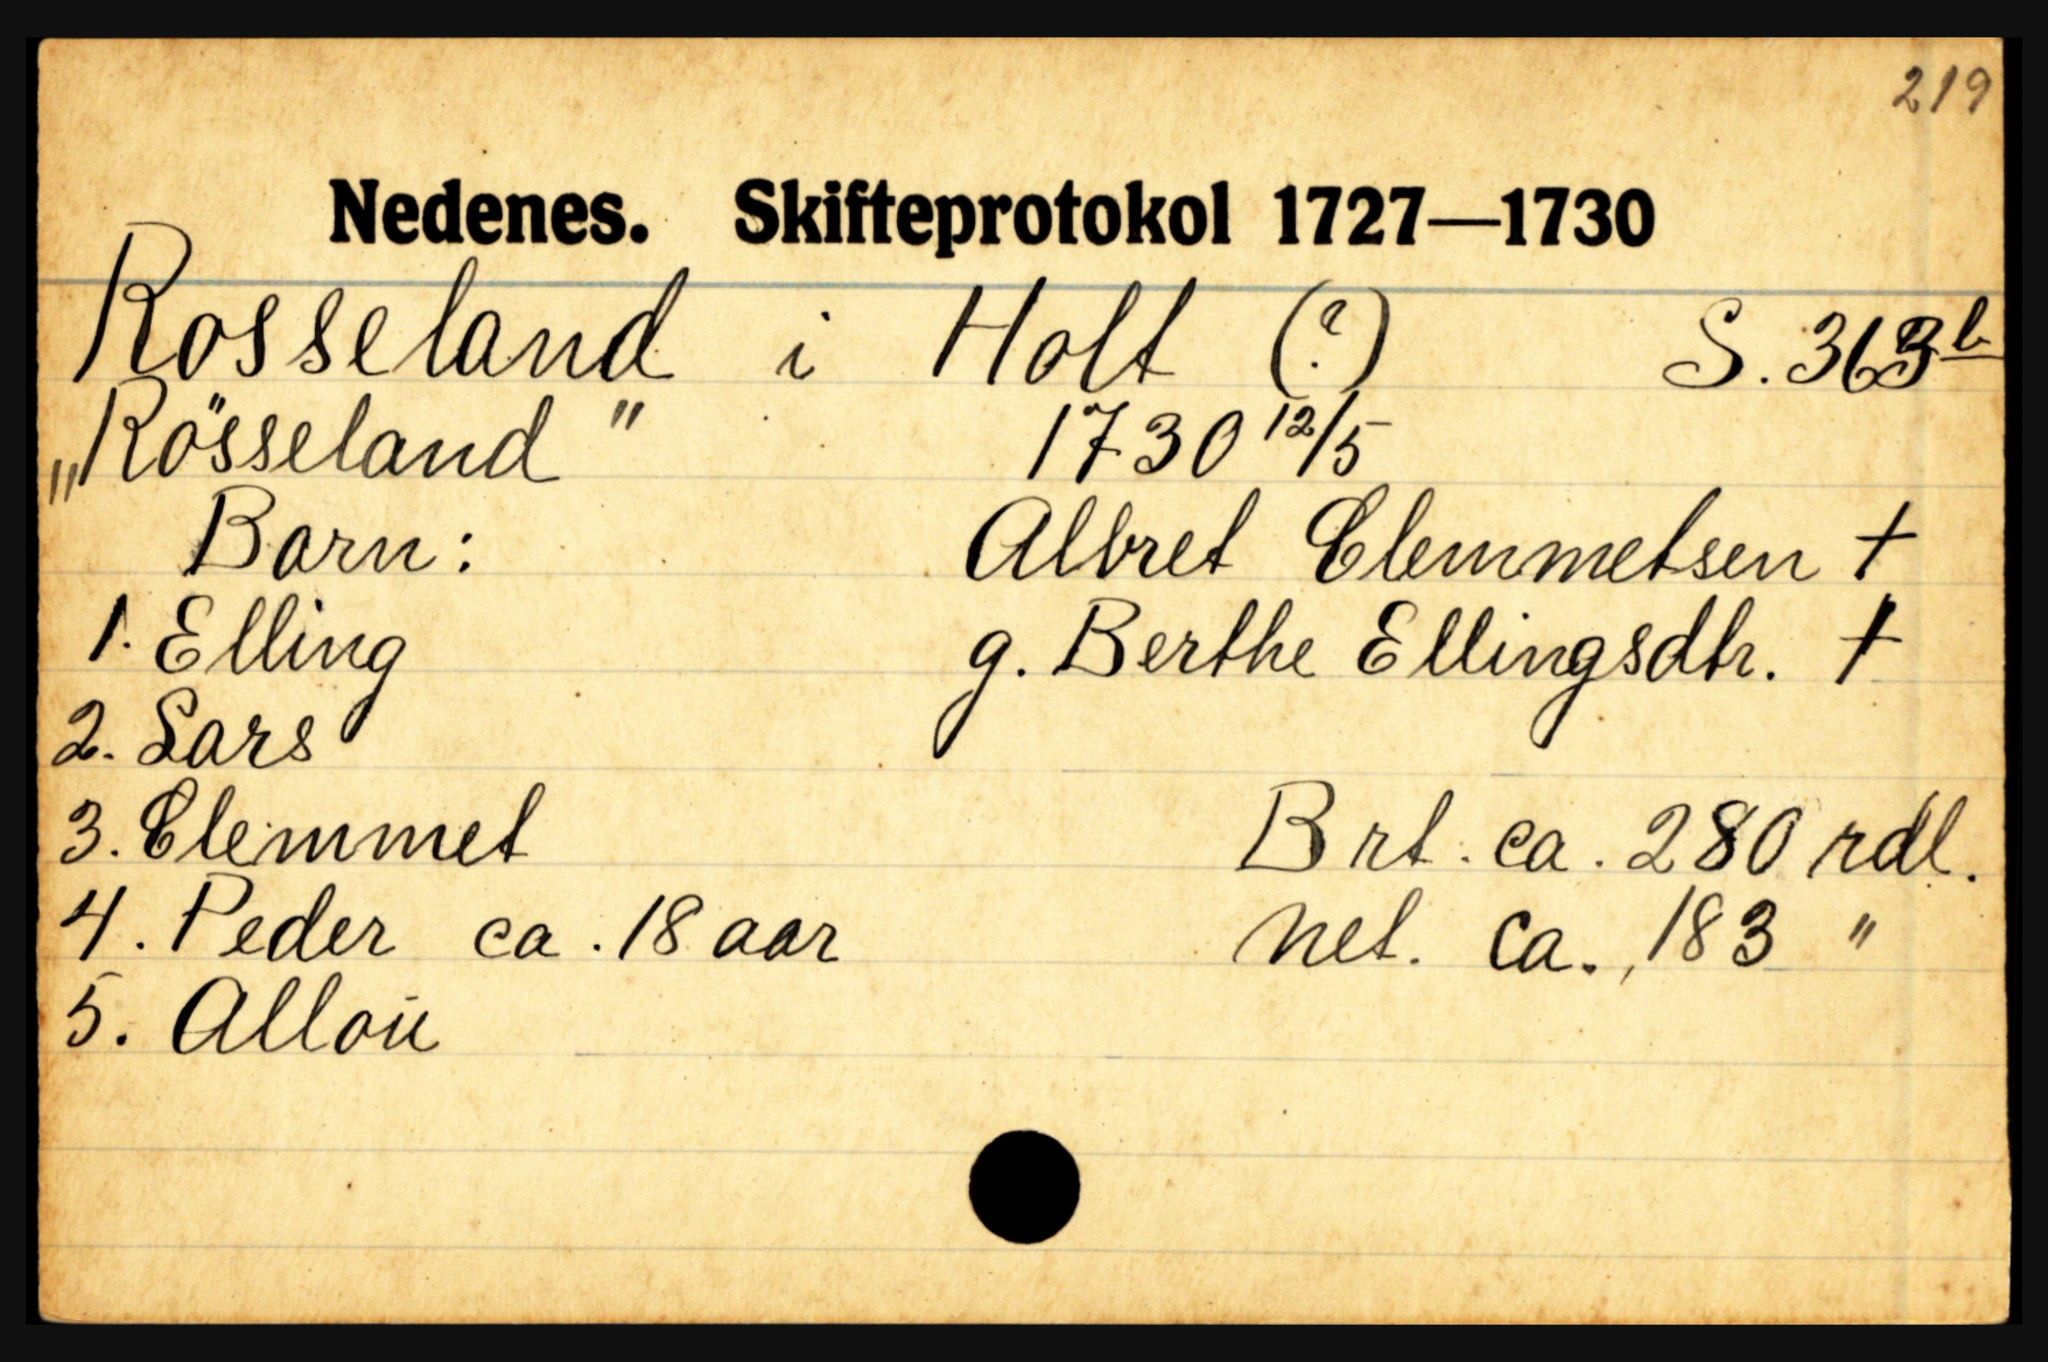 219
Nedenes. Skifteprotokol 1727—1730
Rosseland i Holt (?) S. 363b
„Rösseland" 1730 12/5
Barn: Albret Clemmetsen †
1. Elling g. Berthe Ellingsdtr. †
2. Lars
3. Clemmet Brt. ca. 280 rdl.
4. Peder ca. 18 aar net. ca. 183 "
5. Alloŭ